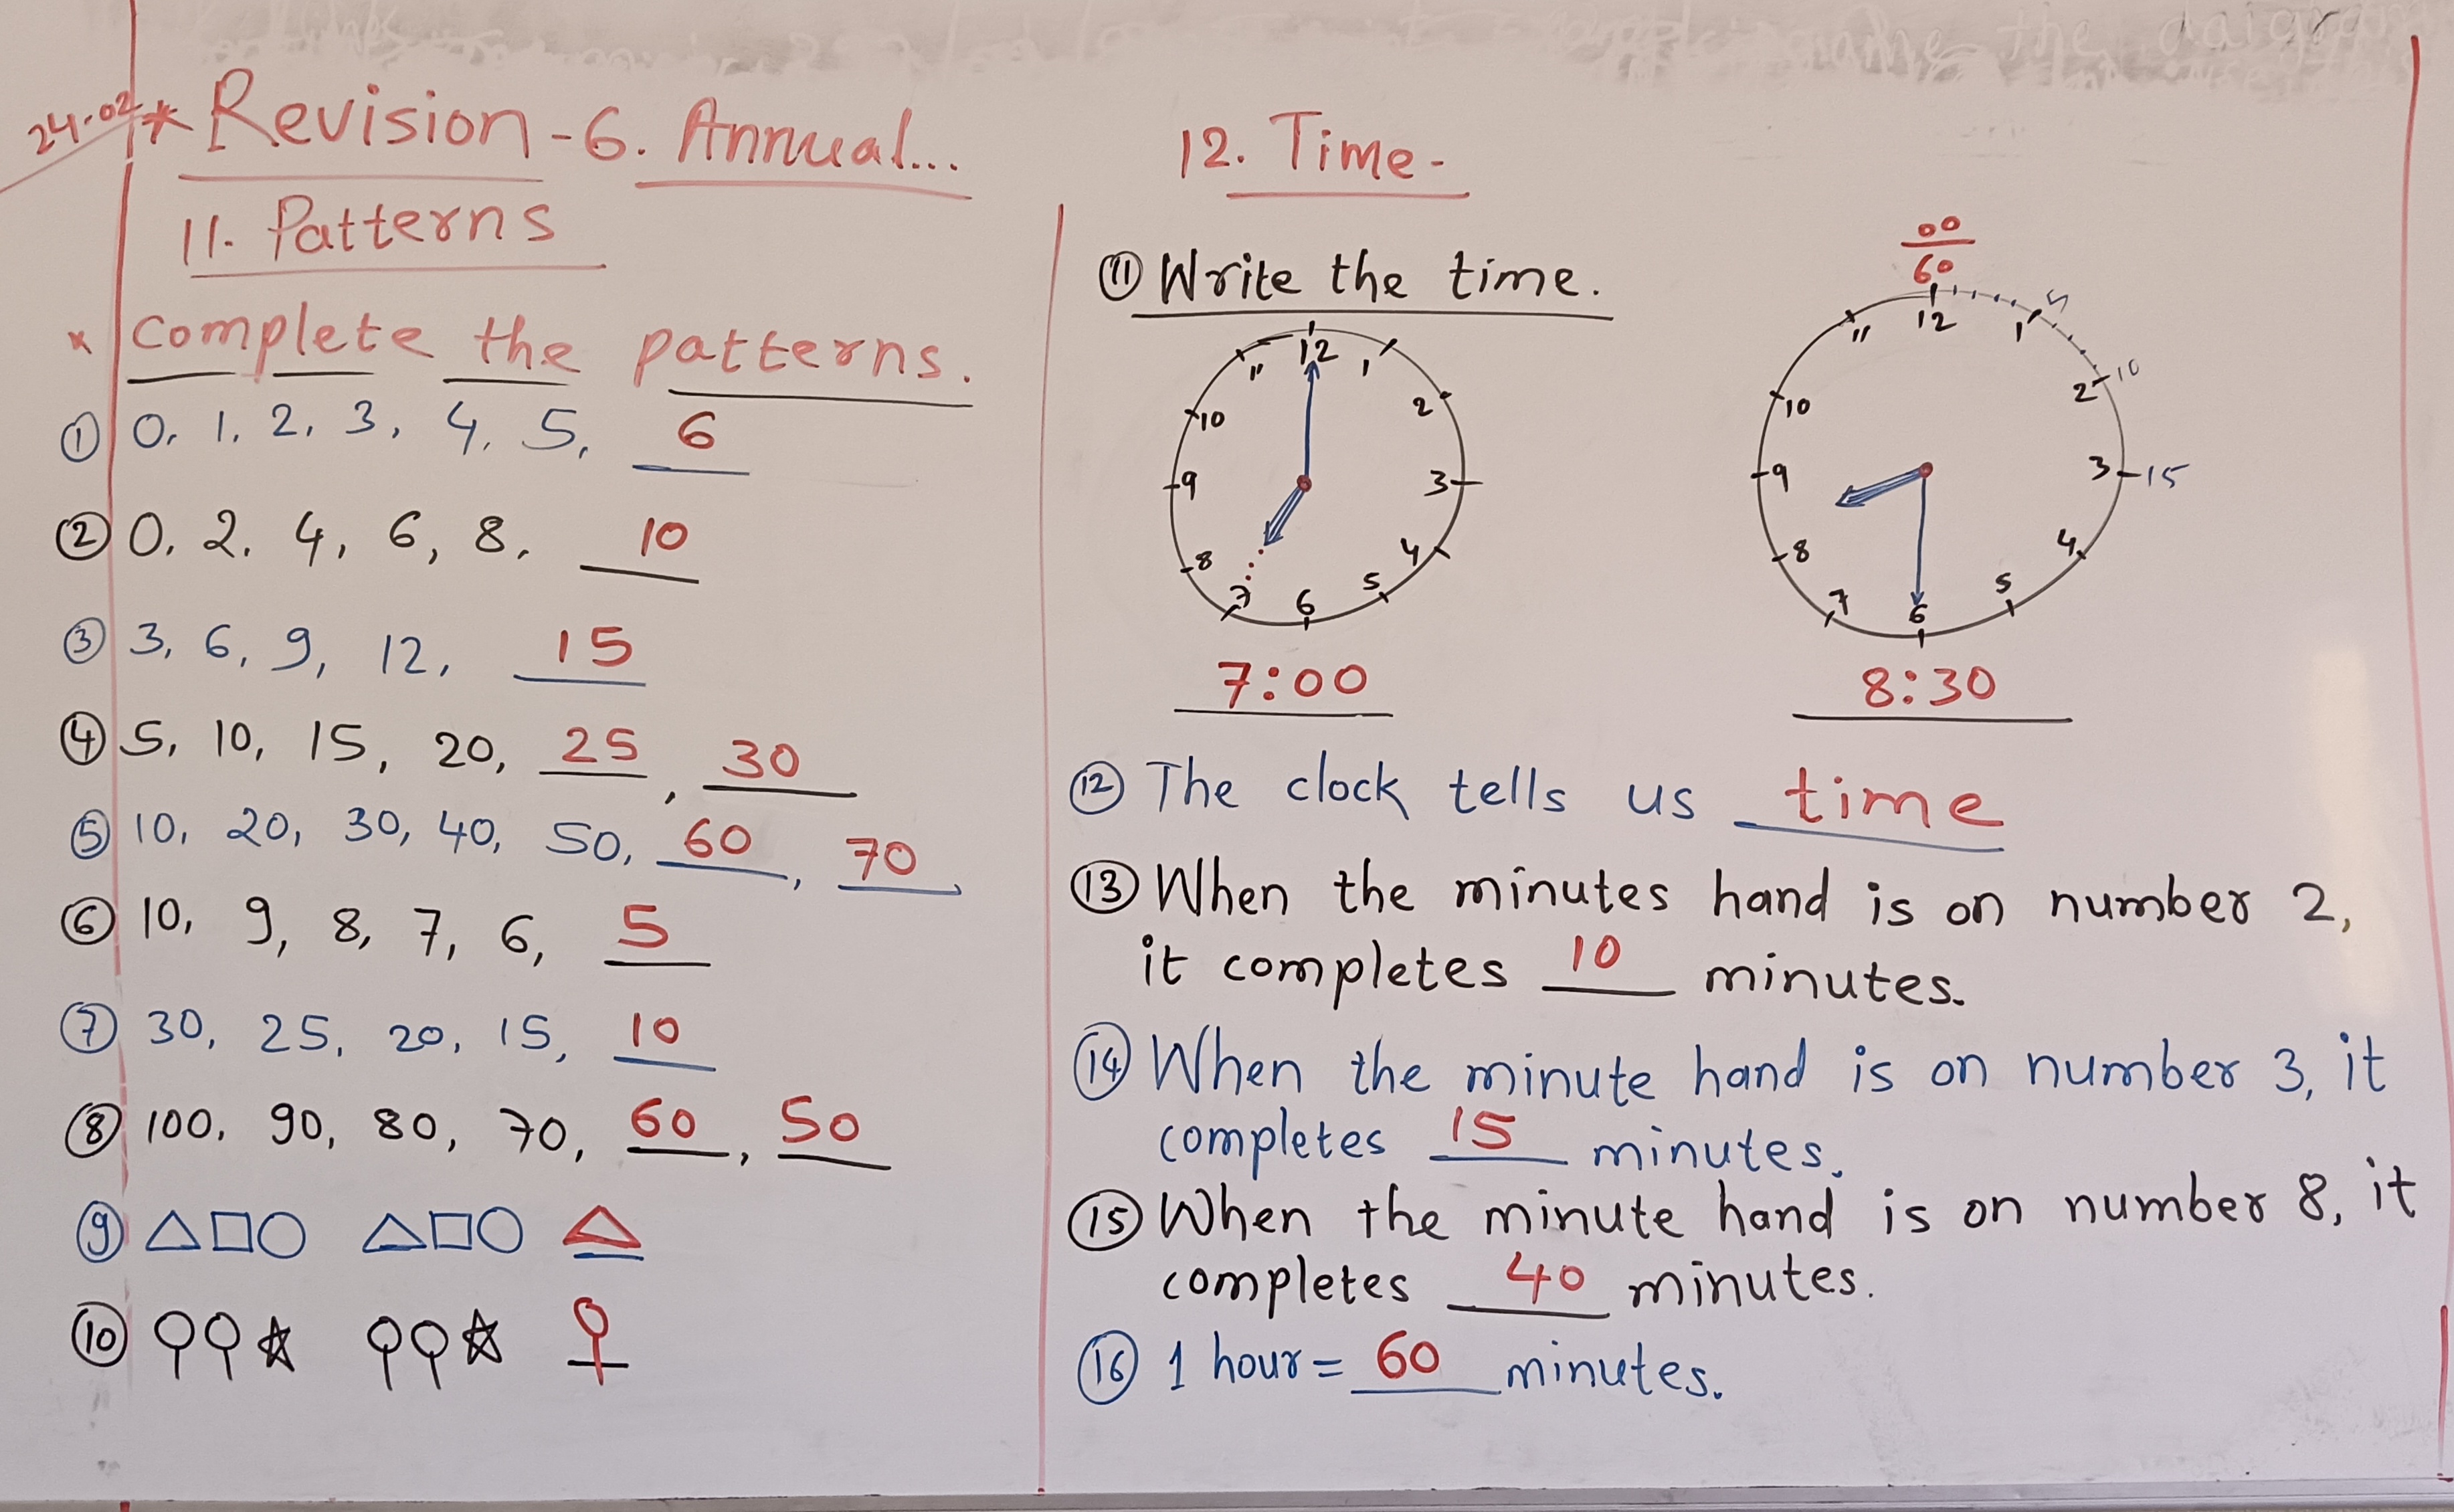 24.02
* Revision - 6. Annual...
11. Patterns
* Complete the patterns.
① 0, 1, 2, 3, 4, 5, 6
② 0, 2, 4, 6, 8, 10
③ 3, 6, 9, 12, 15
④ 5, 10, 15, 20, 25, 30
⑤ 10, 20, 30, 40, 50, 60, 70
⑥ 10, 9, 8, 7, 6, 5
⑦ 30, 25, 20, 15, 10
⑧ 100, 90, 80, 70, 60, 50
⑨
⑩
12. Time -
⑪ Write the time.
12 1 2 3 4 5 6 7 8 9 10 11
7:00
00
60
12 1 2 3 4 5 6 7 8 9 10 11
5 10 15
8:30
⑫ The clock tells us time
⑬ When the minutes hand is on number 2,
it completes 10 minutes.
⑭ When the minute hand is on number 3, it
completes 15 minutes.
⑮ When the minute hand is on number 8, it
completes 40 minutes.
⑯ 1 hour = 60 minutes.